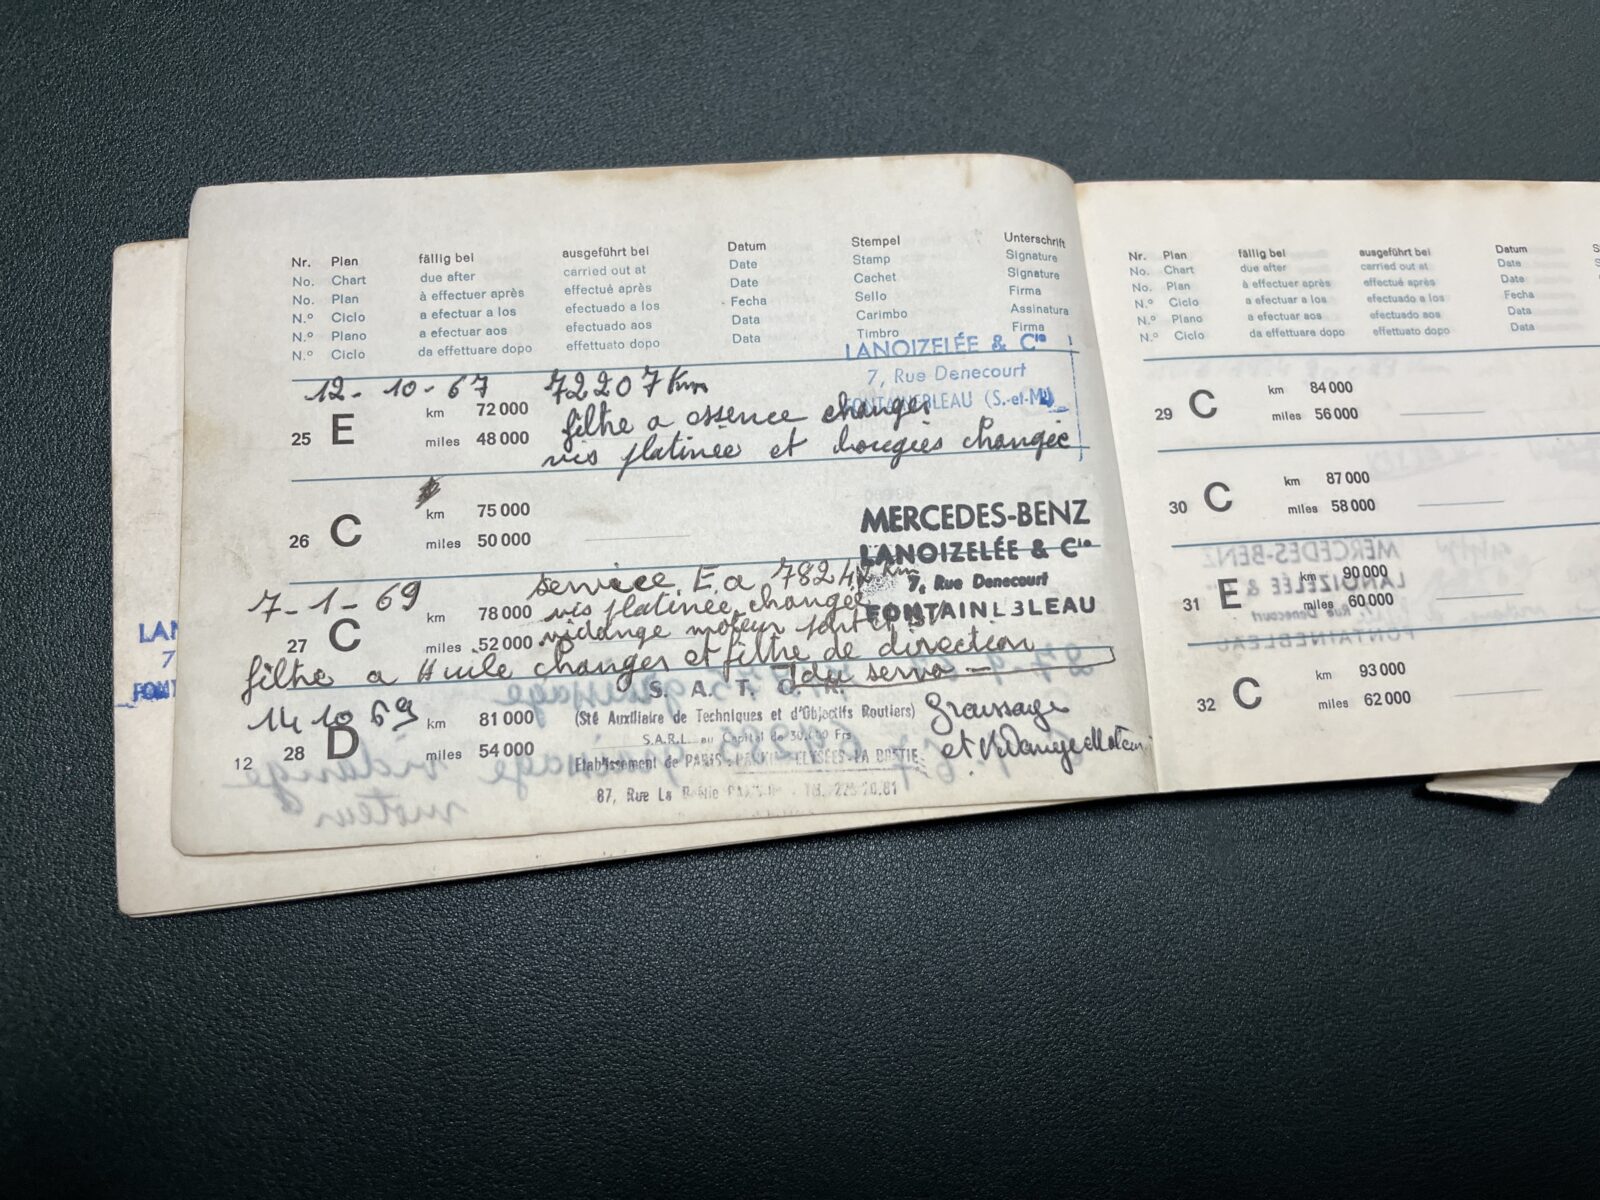 Nr. Plan fällig bei ausgeführt bei Datum Stempel Unterschrift
No. Chart due after carried out at Date Stamp Signature
No. Plan à effectuer après effectué après Date Cachet Signature
N.º Ciclo a efectuar a los efectuado a los Fecha Sello Firma
N.º Plano a efectuar aos efectuado aos Data Carimbo Assinatura
N.º Ciclo da effettuare dopo effettuato dopo Data Timbro Firma
LANOIZELÉE & Cie
7, Rue Denecourt
FONTAINEBLEAU (S.-et-M.)
12-10-67 72207 Km
25 E km 72 000
miles 48 000
filtre a essence changer
vis platinée et bougies changée
26 C km 75 000
miles 50 000
MERCEDES-BENZ
LANOIZELÉE & Cie
7, Rue Denecourt
FONTAINEBLEAU
7-1-69 service E a Km
27 C km 78 000
miles 52 000
vis platinée changée
vidange moteur
filtre a Huile changer et filtre de direction
du servo
14 10 69
28 D km 81 000
miles 54 000
S. A. T.
(Sté Auxiliaire de Techniques et d'Objectifs Routiers)
S.A.R.L. au Capital de Frs
Etablissement de PARIS
87, Rue La
Graissage
et Vidange Moteur
12
Nr. Plan fällig bei ausgeführt bei Datum
No. Chart due after carried out at Date
No. Plan à effectuer après effectué après Date
N.º Ciclo a efectuar a los efectuado a los Fecha
N.º Plano a efectuar aos efectuado aos Data
N.º Ciclo da effettuare dopo effettuato dopo Data
29 C km 84 000
miles 56 000
30 C km 87 000
miles 58 000
31 E km 90 000
miles 60 000
32 C km 93 000
miles 62 000
LAN
7
FONT